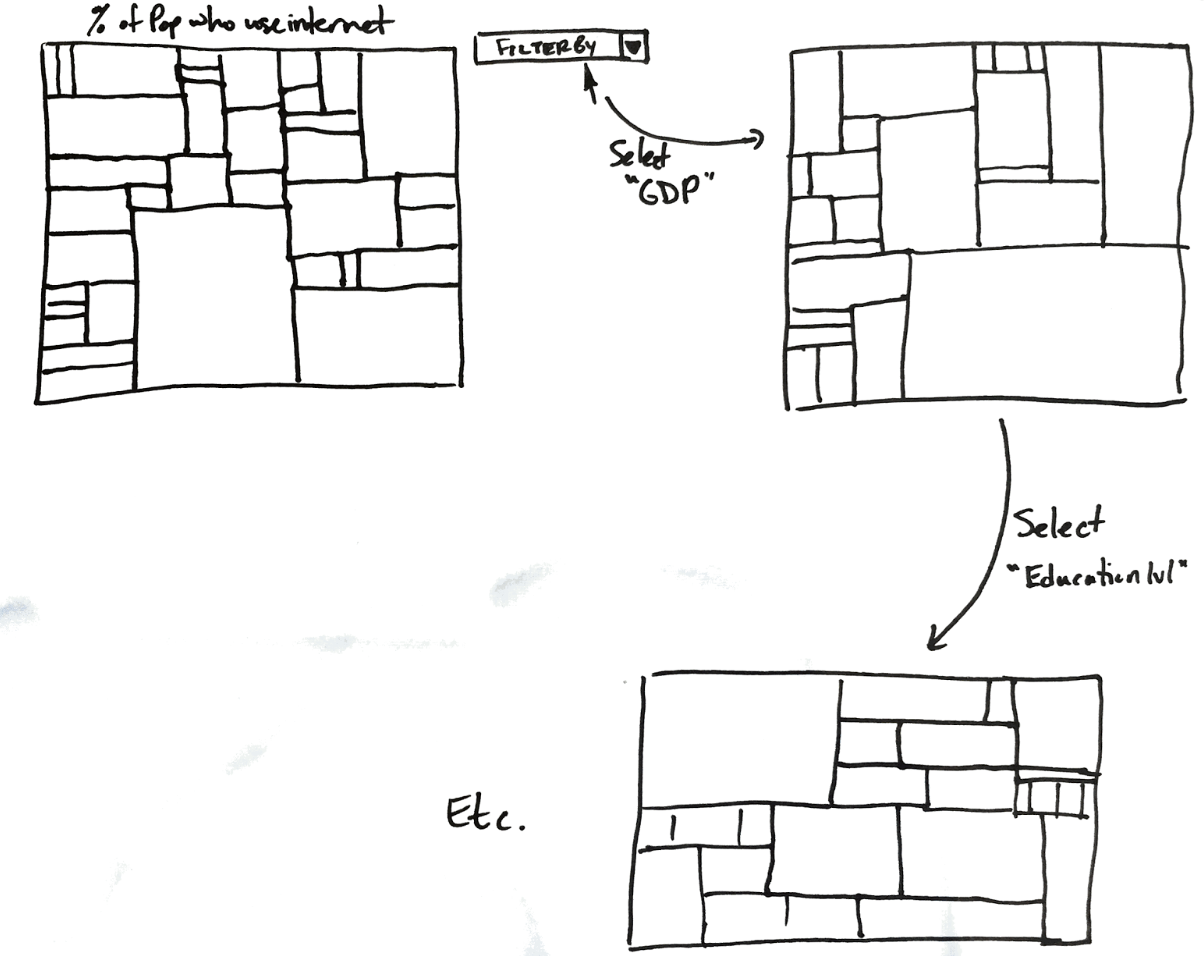 % of Pop who use internet
FILTER BY
Select
"GDP"
Select
"Education lvl"
Etc.